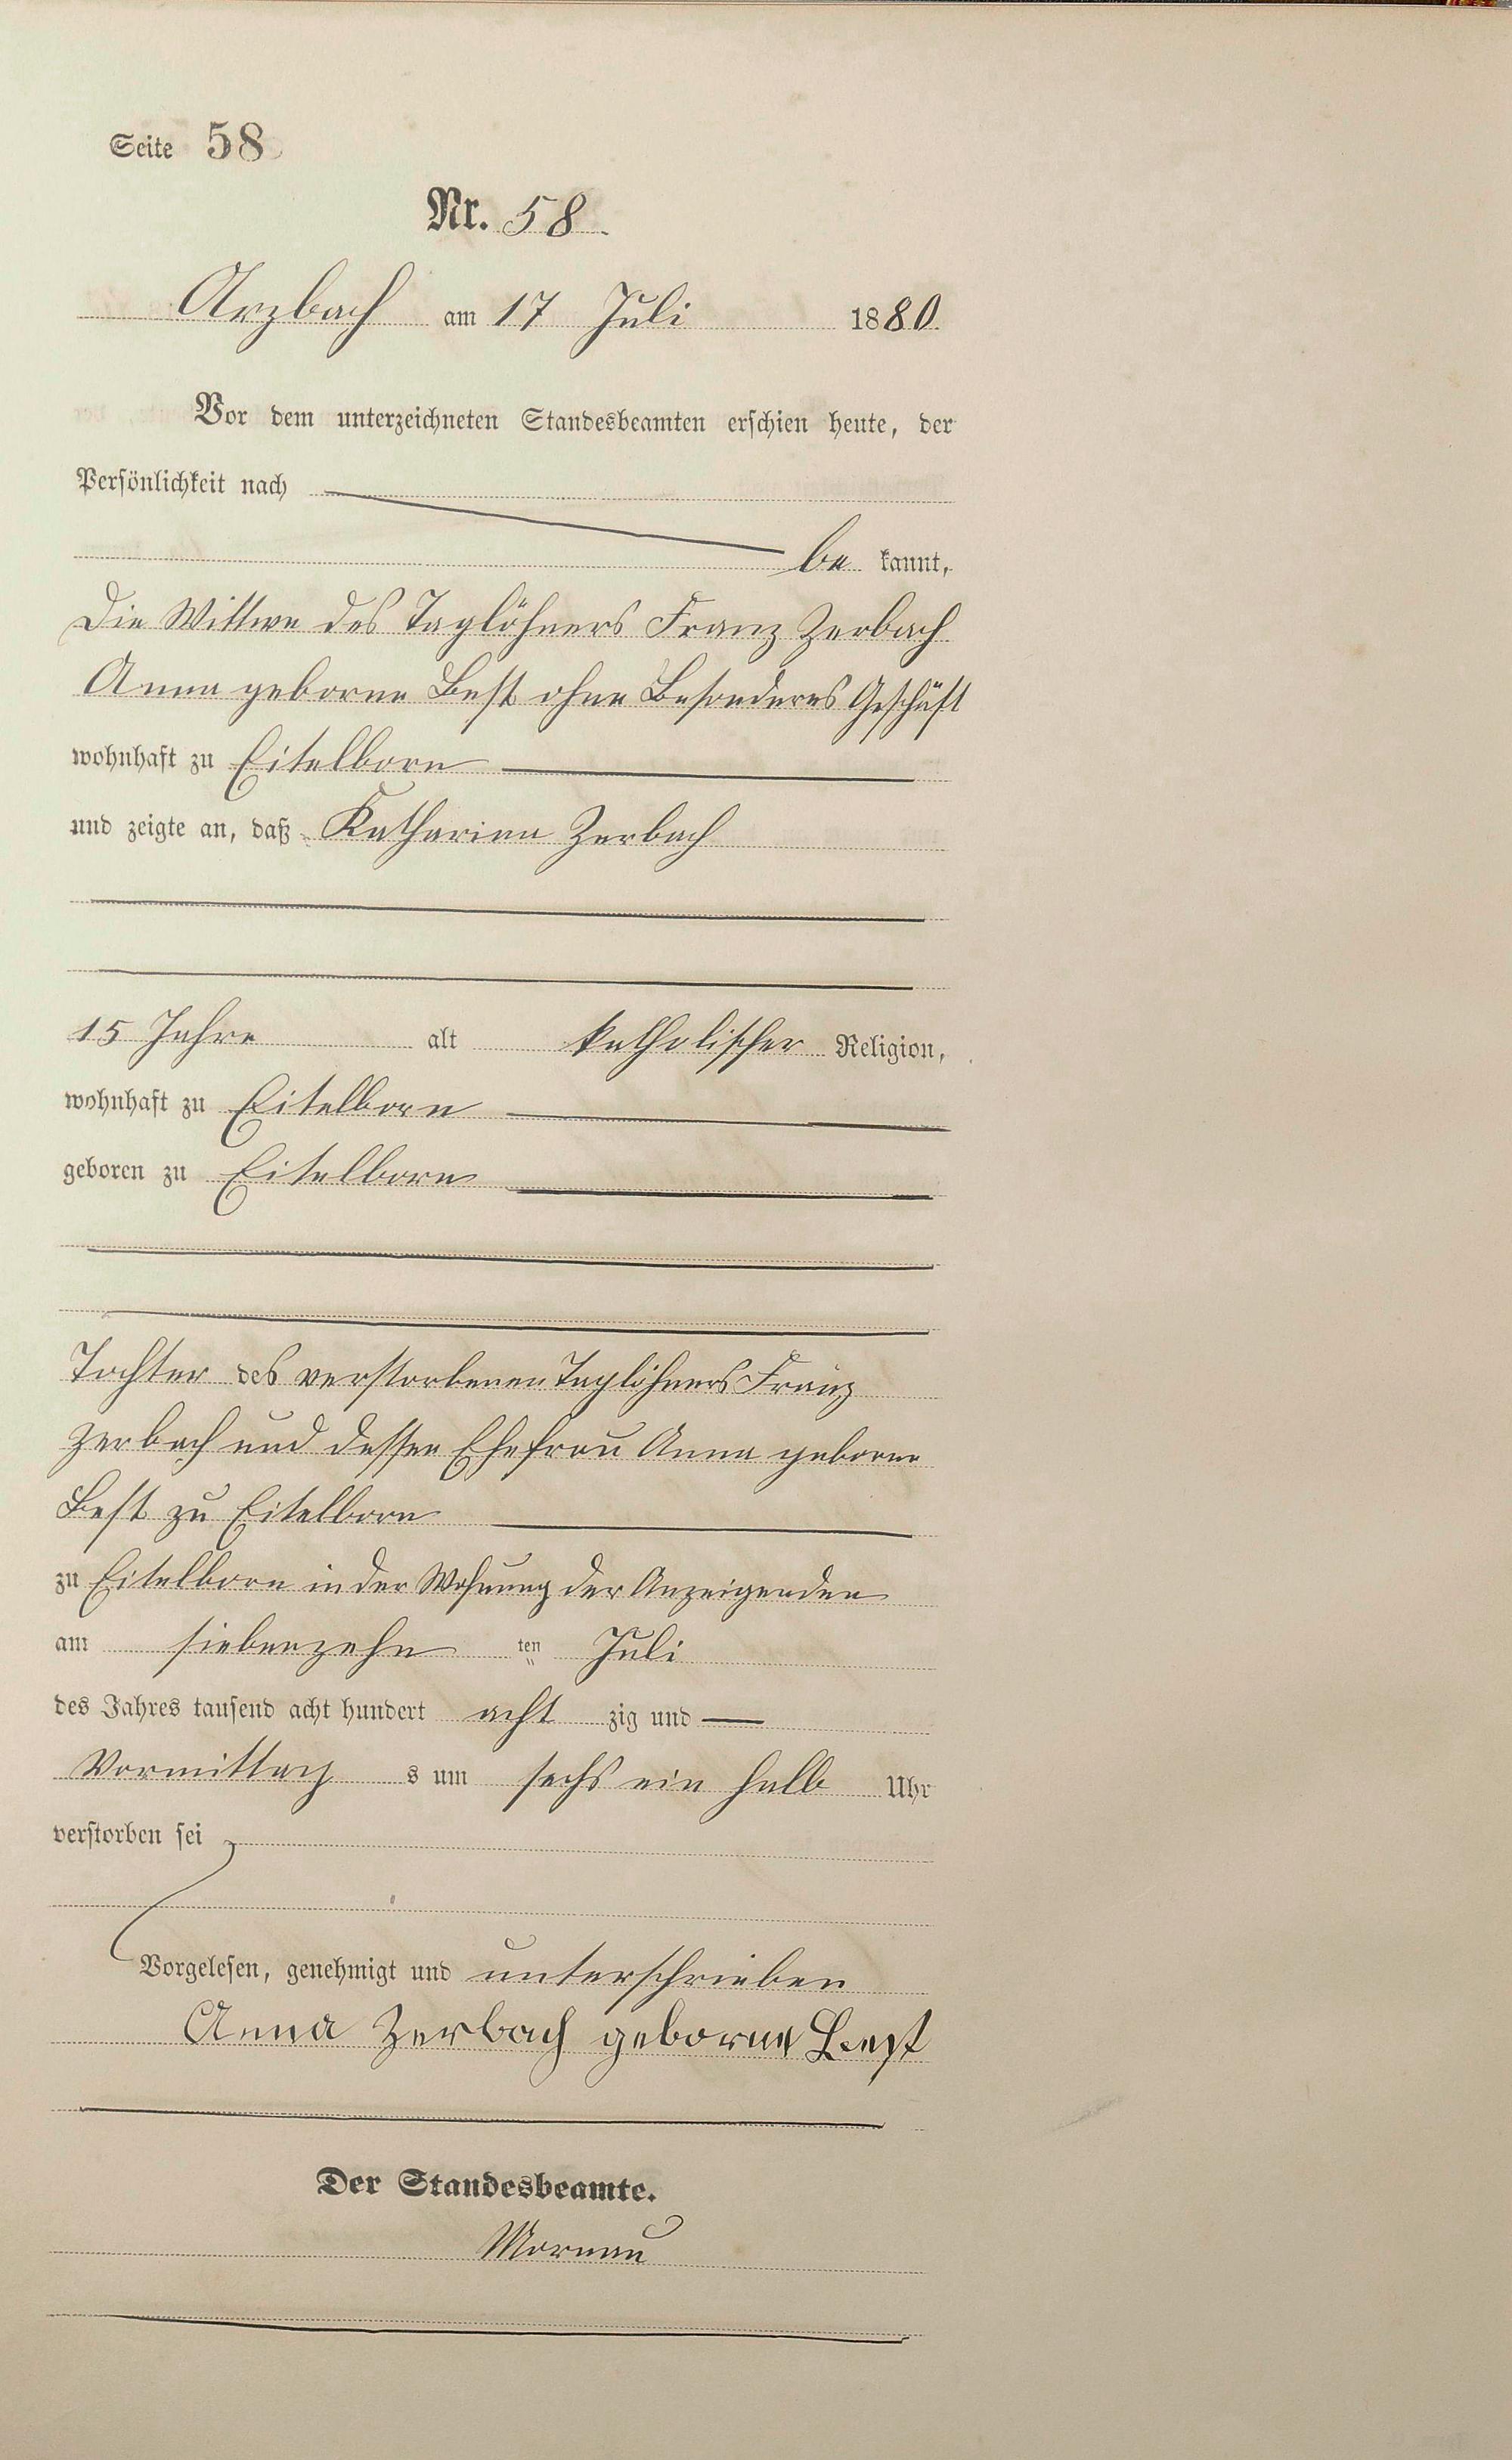 Seite 58
Nr. 58.
Arzbach am 17 Juli 1880.
Vor dem unterzeichneten Standesbeamten erschien heute, der
Persönlichkeit nach
be kannt,
Die Wittwe des Taglöhners Franz Zerbach
Anna geborne Best ohne Besonderes Geschäft
wohnhaft zu Eitelborn
und zeigte an, daß Katharina Zerbach
15 Jahre alt katholischer Religion,
wohnhaft zu Eitelborn
geboren zu Eitelborn
Tochter des verstorbenen Taglöhners Franz
Zerbach und dessen Ehefrau Anna geborne
Best zu Eitelborn
zu Eitelborn in der Wohnung der Anzeigenden
am siebenzehn ten Juli
des Jahres tausend acht hundert acht zig und
Vormittag s um sechs ein halb Uhr
verstorben sei
Vorgelesen, genehmigt und unterschrieben
Anna Zerbach geborne Best
Der Standesbeamte.